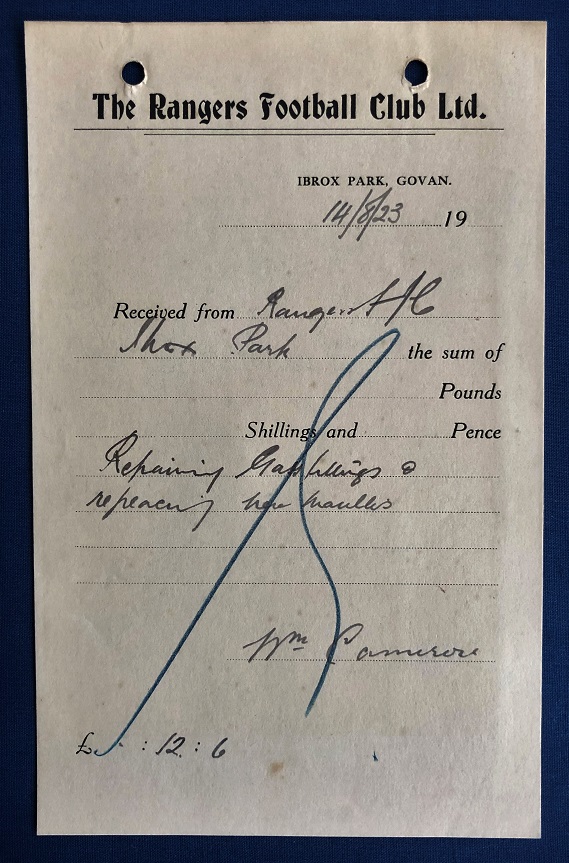 The Rangers Football Club Ltd.
IBROX PARK, GOVAN.
14/8/23 19
Received from Rangers F/C
Ibrox Park the sum of
Pounds
Shillings and Pence
Repairing Gasfittings &
replacing new mantles
Wm Cameron
£ : 12 : 6